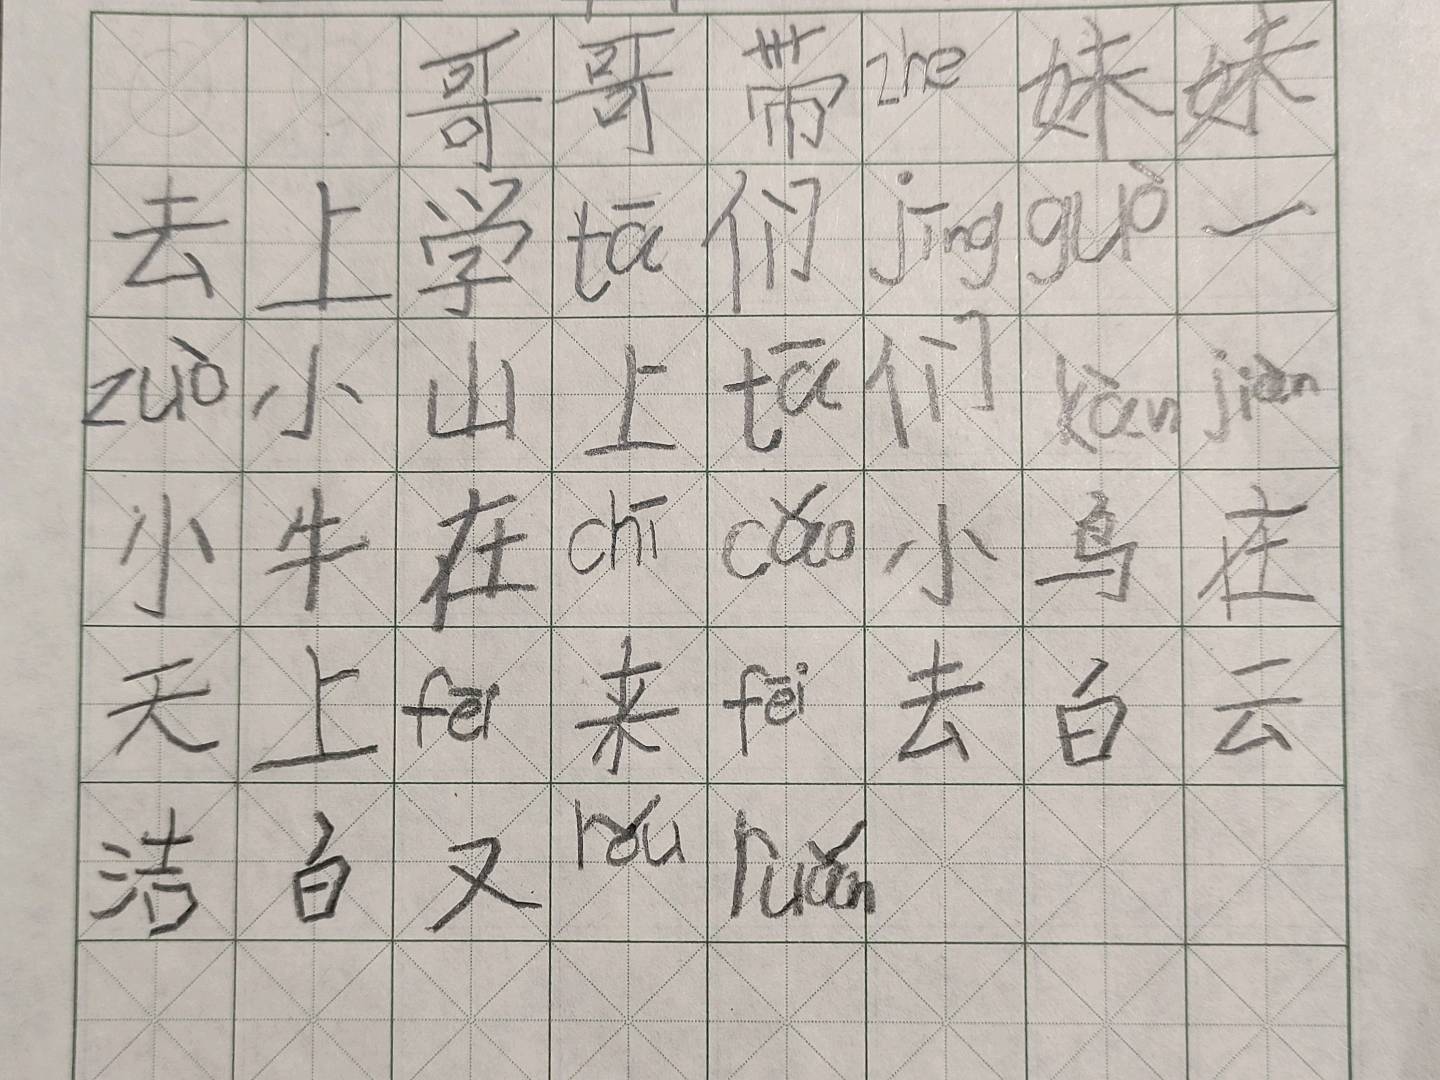 哥哥带zhe妹妹
去上学tā们jīngguò一
zuò小山上tā们kànjiàn
小牛在chīcǎo小鸟在
天上fēi来fēi去白云
洁白又róuruǎn